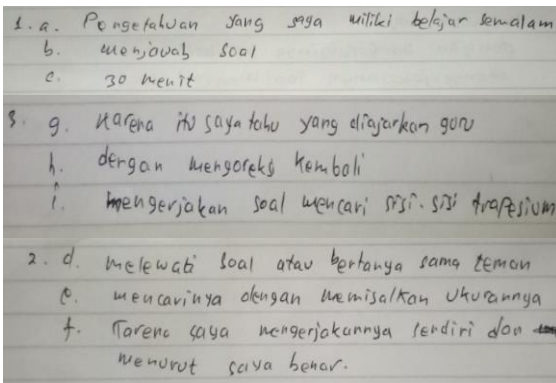 1. a. Pengetahuan yang saya miliki belajar semalam
b. menjawab soal
c. 30 menit
3. g. Karena itu saya tahu yang diajarkan guru
h. dengan mengoreksi kembali
i. mengerjakan soal mencari sisi-sisi trapesium
2. d. melewati soal atau bertanya sama teman
e. mencarinya dengan memisalkan ukurannya
f. Karena saya mengerjakannya sendiri dan
menurut saya benar.